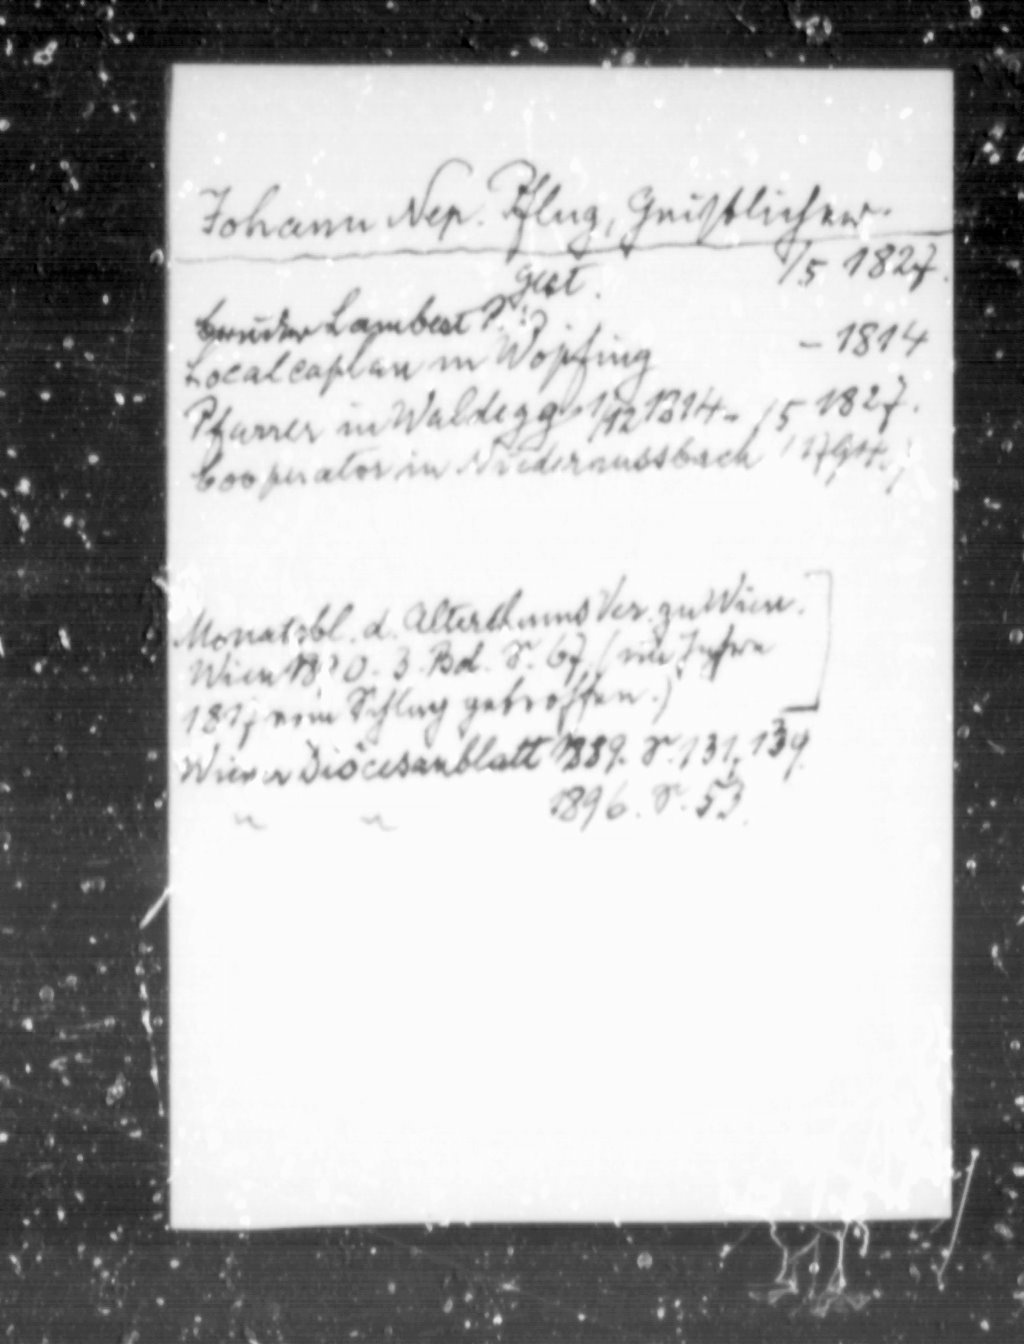 Johann Nep. Pflug, Geistlicher.
gest. 1/5 1827.
Bruder Lambert P.
Localcaplan in Wopfing – 1814
Pfarrer in Waldegg 1/12 1814 – 1/5 1827.
Cooperator in Niederrussbach
Monatsbl. d. Alterthums Ver. zu Wien.
Wien 3. Bd. S. 67 (im Jahre
1817 vom Schlag getroffen.)
Wiener Diöcesanblatt 1889. S. 131, 139
" " 1896. S. 53.